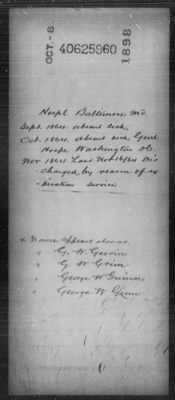 OCT.-6
40625960
1898
Hospl Baltimore Md.
Sept. 1864. absent sick,
Oct. 1864. absent sick Genl
Hospl Washington
Nov 1864 Dis
charged by reason of ex
piration service
x Name appears also as
" G. W. Garvin
" G. W. Grim
" George W
" George W